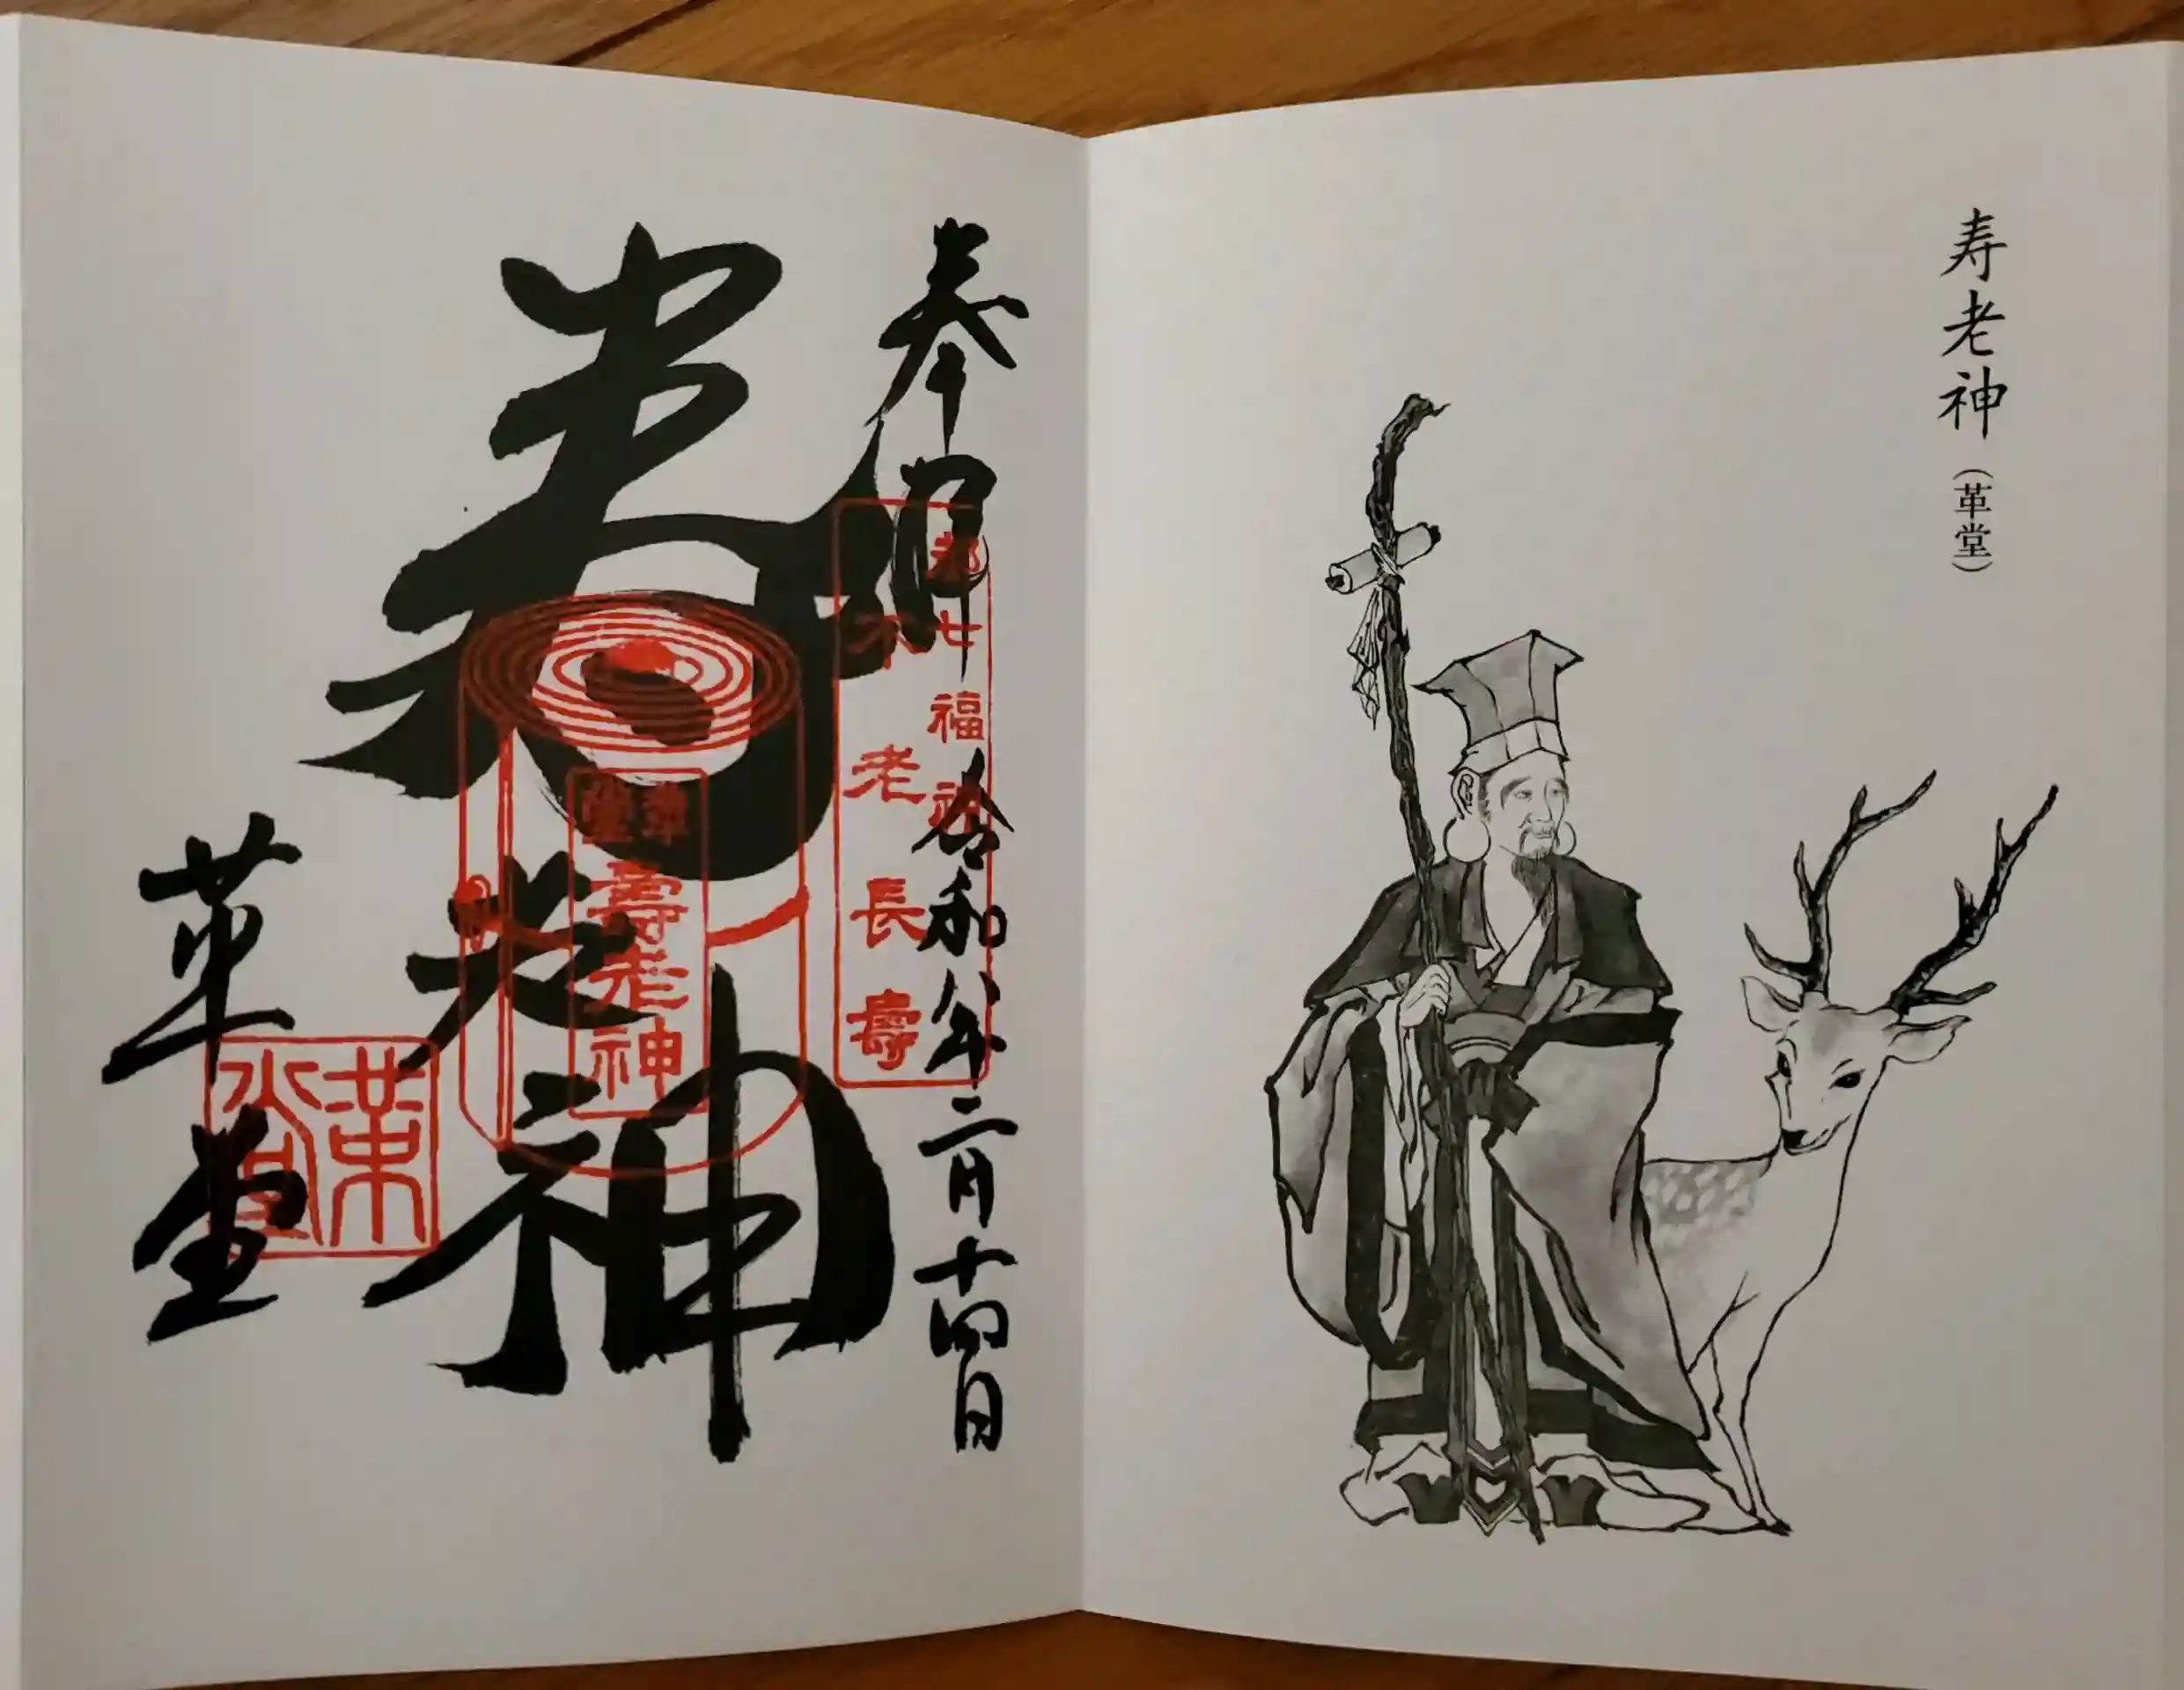 寿老神
(革堂)
奉拝
都七福神
不老長壽
令和八年二月十四日
寿老神
革堂
壽老神
革堂
革堂